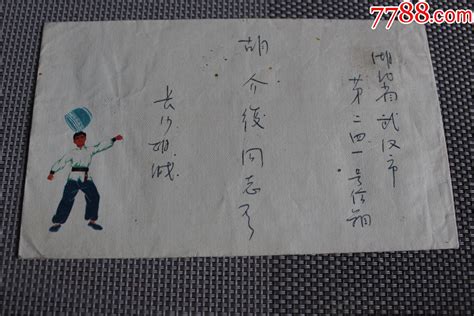 7788.com
湖北省武汉市
第二四一号信箱
胡介同志
长沙胡缄